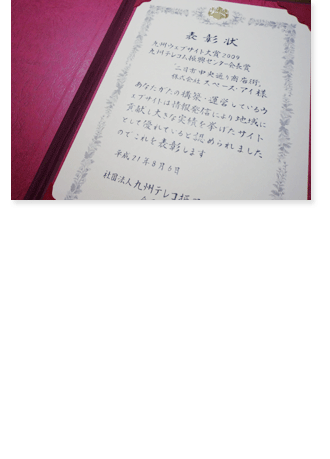 表彰状
九州ウェブサイト大賞2009
九州テレコム振興センター会長賞
二日市中央通り商店街
株式会社スペース・アイ様
あなたがたの構築・運営しているウ
ェブサイトは情報発信により地域に
貢献し大きな実績を挙げたサイト
として優れていると認められました
のでこれを表彰します
平成21年8月5日
社団法人九州テレコム振